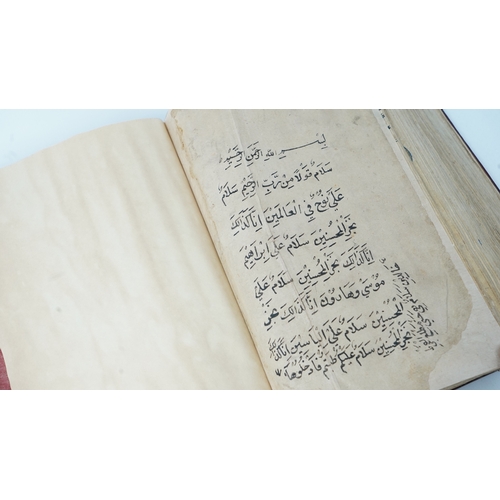 بسم الله الرحمن الرحيم
سَلَامٌ قَوْلًا مِنْ رَبٍّ الرَّحِيمِ سَلَامٌ
عَلَى نُوحٍ فِي الْعَالَمِينَ اِنَّا كَذَالِكَ
نَجْزِ الْمُحْسِنِينَ سَلَامٌ عَلَى اِبْرَاهِيمَ
اِنَّا كَذَالِكَ نَجْزِ الْمُحْسِنِينَ سَلَامٌ عَلَى
مُوسَى وَهَارُونَ اِنَّا كَذَالِكَ نَجْزِ
الْمُحْسِنِينَ سَلَامٌ عَلَى اِلْيَاسِينَ اِنَّا كَذَالِكَ
نَجْزِ الْمُحْسِنِينَ سَلَامٌ عَلَيْكُمْ طِبْتُمْ فَادْخُلُوهَا